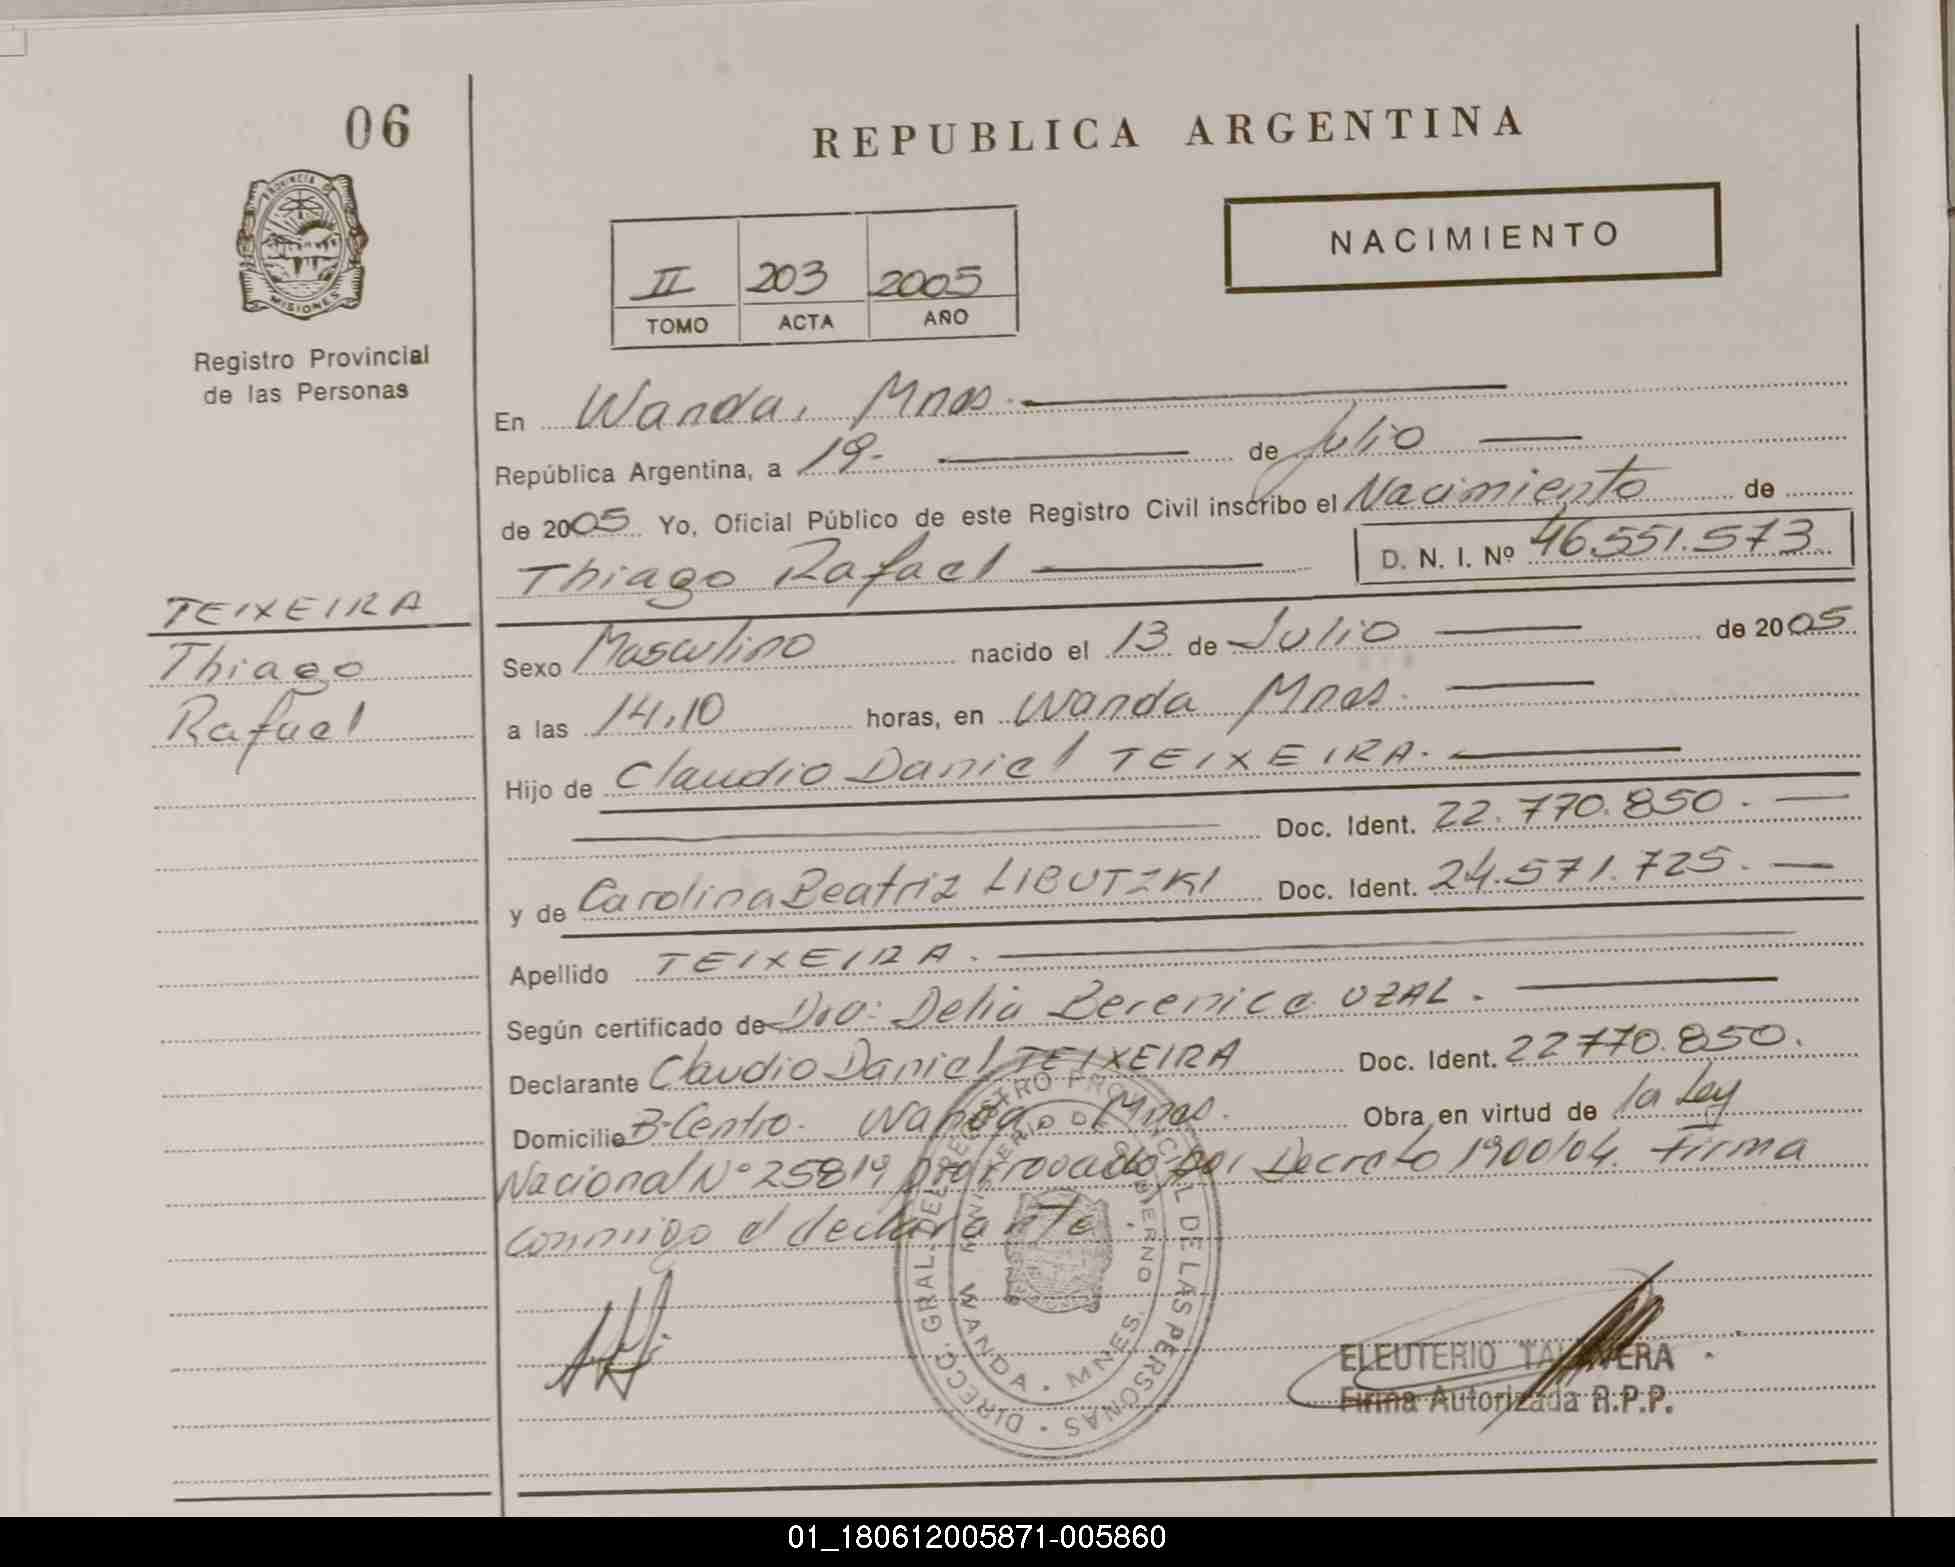 06
REPUBLICA ARGENTINA
PROVINCIA DE
MISIONES
Registro Provincial
de las Personas
NACIMIENTO
II 203 2005
TOMO ACTA AÑO
En Wanda, Mnes.
República Argentina, a 19- de Julio
de 2005 Yo, Oficial Público de este Registro Civil inscribo el Nacimiento de
Thiago Rafael D. N. I. Nº 46.551.573
TEIXEIRA
Thiago
Rafael
Sexo Masculino nacido el 13 de Julio de 2005
a las 14,10 horas, en Wanda Mnes.
Hijo de Claudio Daniel TEIXEIRA.
Doc. Ident. 22.770.850.
y de Carolina Beatriz LIBUTZKI Doc. Ident. 24.571.725.
Apellido TEIXEIRA.
Según certificado de Dra: Delia Berenice UZAL.
Declarante Claudio Daniel TEIXEIRA Doc. Ident. 22770.850.
Domicilio B-Centro. Wanda, Mnes. Obra en virtud de la Ley
Nacional Nº 25819 prorrogado por Decreto 1900/04. Firma
conmigo el declarante.
DIRECC. GRAL. DEL REGISTRO PROVINCIAL DE LAS PERSONAS
MINISTERIO DE GOBIERNO
WANDA - MNES.
ELEUTERIO TALAVERA
Firma Autorizada R.P.P.
01_180612005871-005860